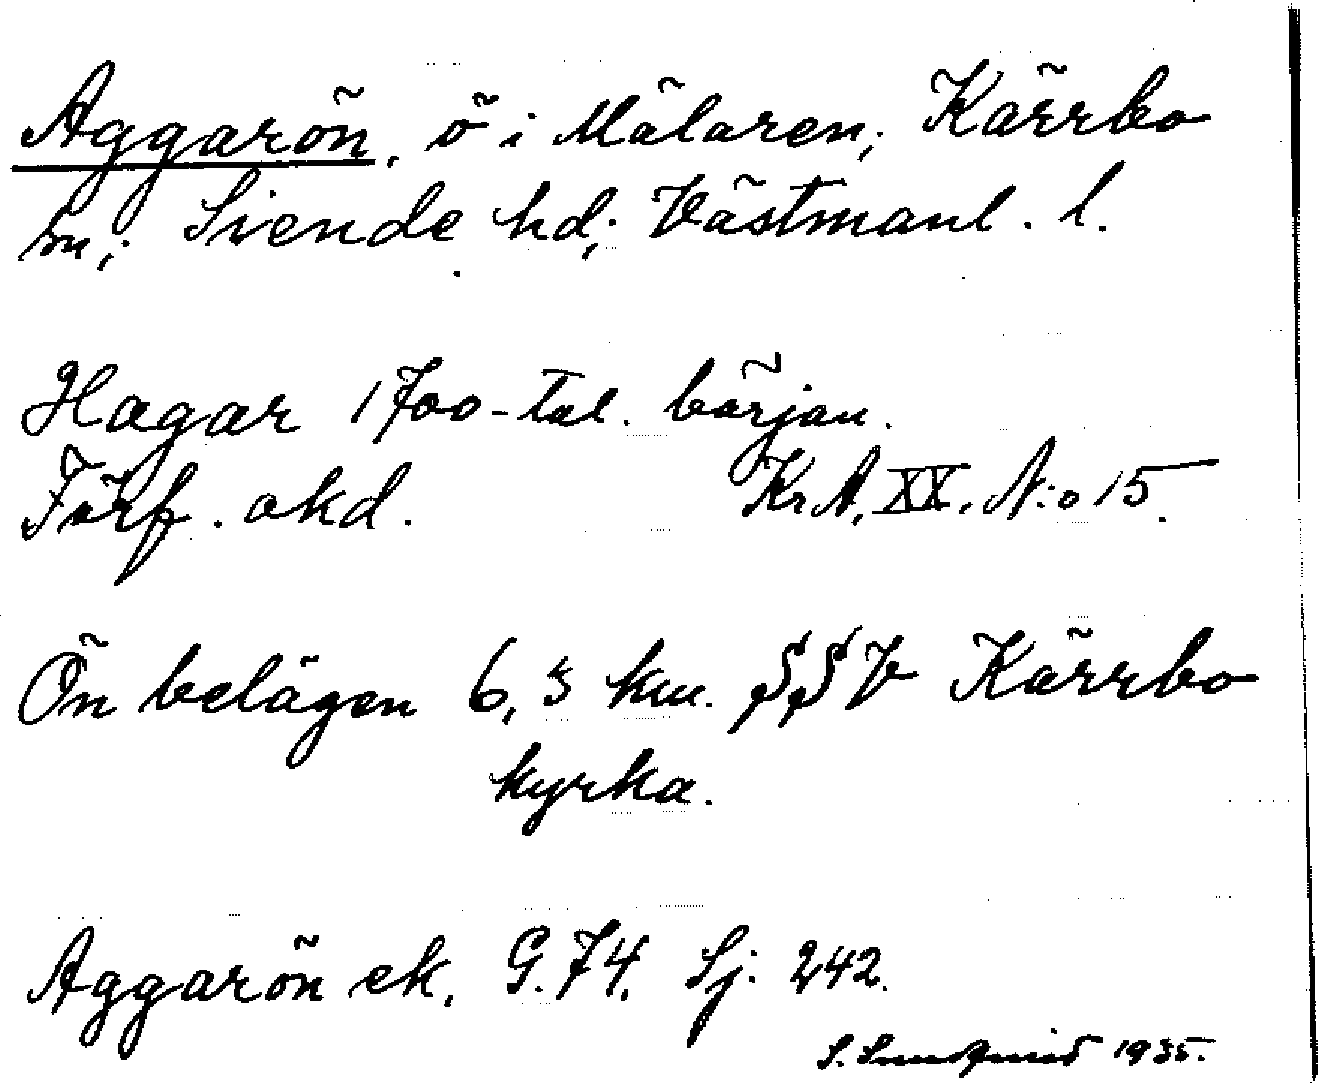 Aggarön, ö i Mälaren, Kärrbo
sn; Siende hd; Västmanl. l.
Hagar 1700-tal. början.
Förf. okd. Kr A. XX. N:o 15.
Ön belägen 6,5 km. SSV Kärrbo
kyrka.
Aggarön ek. G. 74. Sj. 242.
S. 1935.